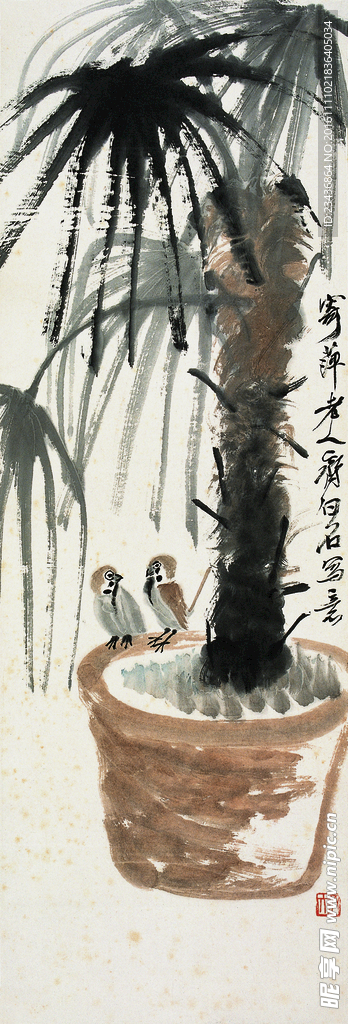 寄萍老人齊白石寫意
ID:23436864 NO:20161111021836405034
昵享网 www.nipic.cn